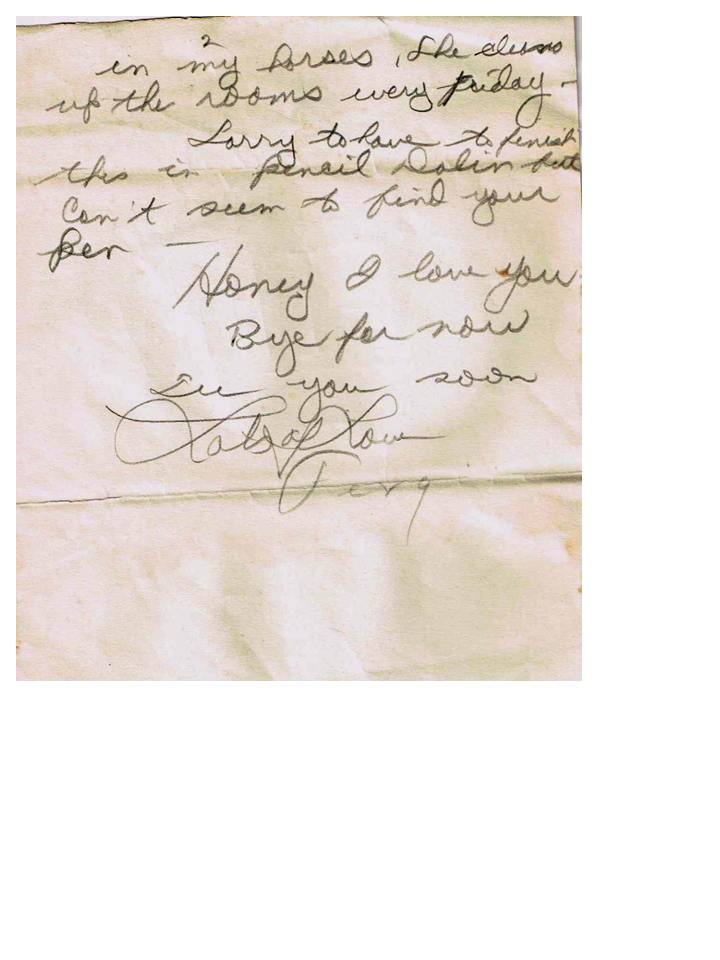 2
in my horses, She cleans
up the rooms every friday -
Sorry to have to finish
this in pencil Dalin but
Can't seem to find your
pen —
Honey I love you
Bye for now
See you soon
Lots of Love